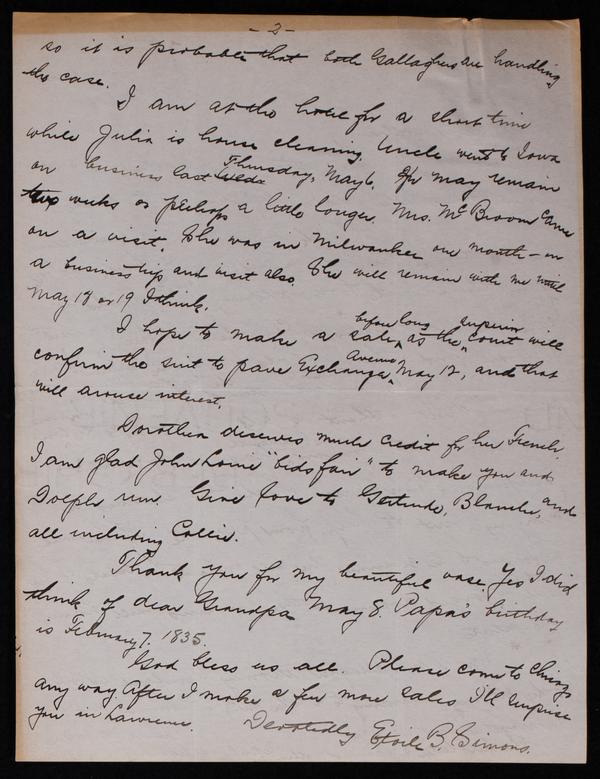 - 2 -
so it is probable that both Gallaghers are handling
the case.
I am at the hotel for a short time
while Julia is house cleaning. Uncle went to Iowa
on business last Thursday, May 6. He may remain
two weeks or perhaps a little longer. Mrs. McBroom came
on a visit. She was in Milwaukee one month - on
a business trip and visit also. She will remain with me until
May 18 or 19 I think.
I hope to make a sale before long as the superior court will
confirm the suit to pave Exchange Avenue May 12, and that
will arouse interest.
Dorothea deserves much credit for her French
I am glad John Louie "bids fair" to make you and
Dolph run. Give love to Gertrude, Blanche, and
all including Collie.
Thank you for my beautiful vase. Yes I did
think of dear Grandpa May 8. Papa's birthday
is February 7, 1835.
God bless us all. Please come to Chicago
any way. After I make a few more sales I'll surprise
you in Lawrence. Devotedly Etoile B. Simons.